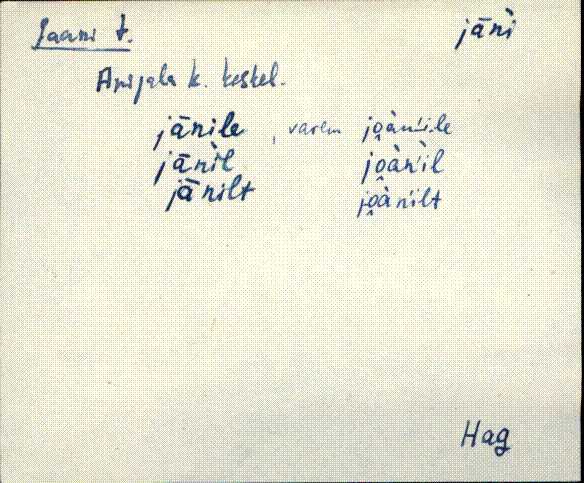 Jaani t. jāǹi
Anijala k. keskel.
jānile, varem jo̭àǹiile
jāǹil jo̭àǹil
jāǹilt jo̭àǹilt
Hag